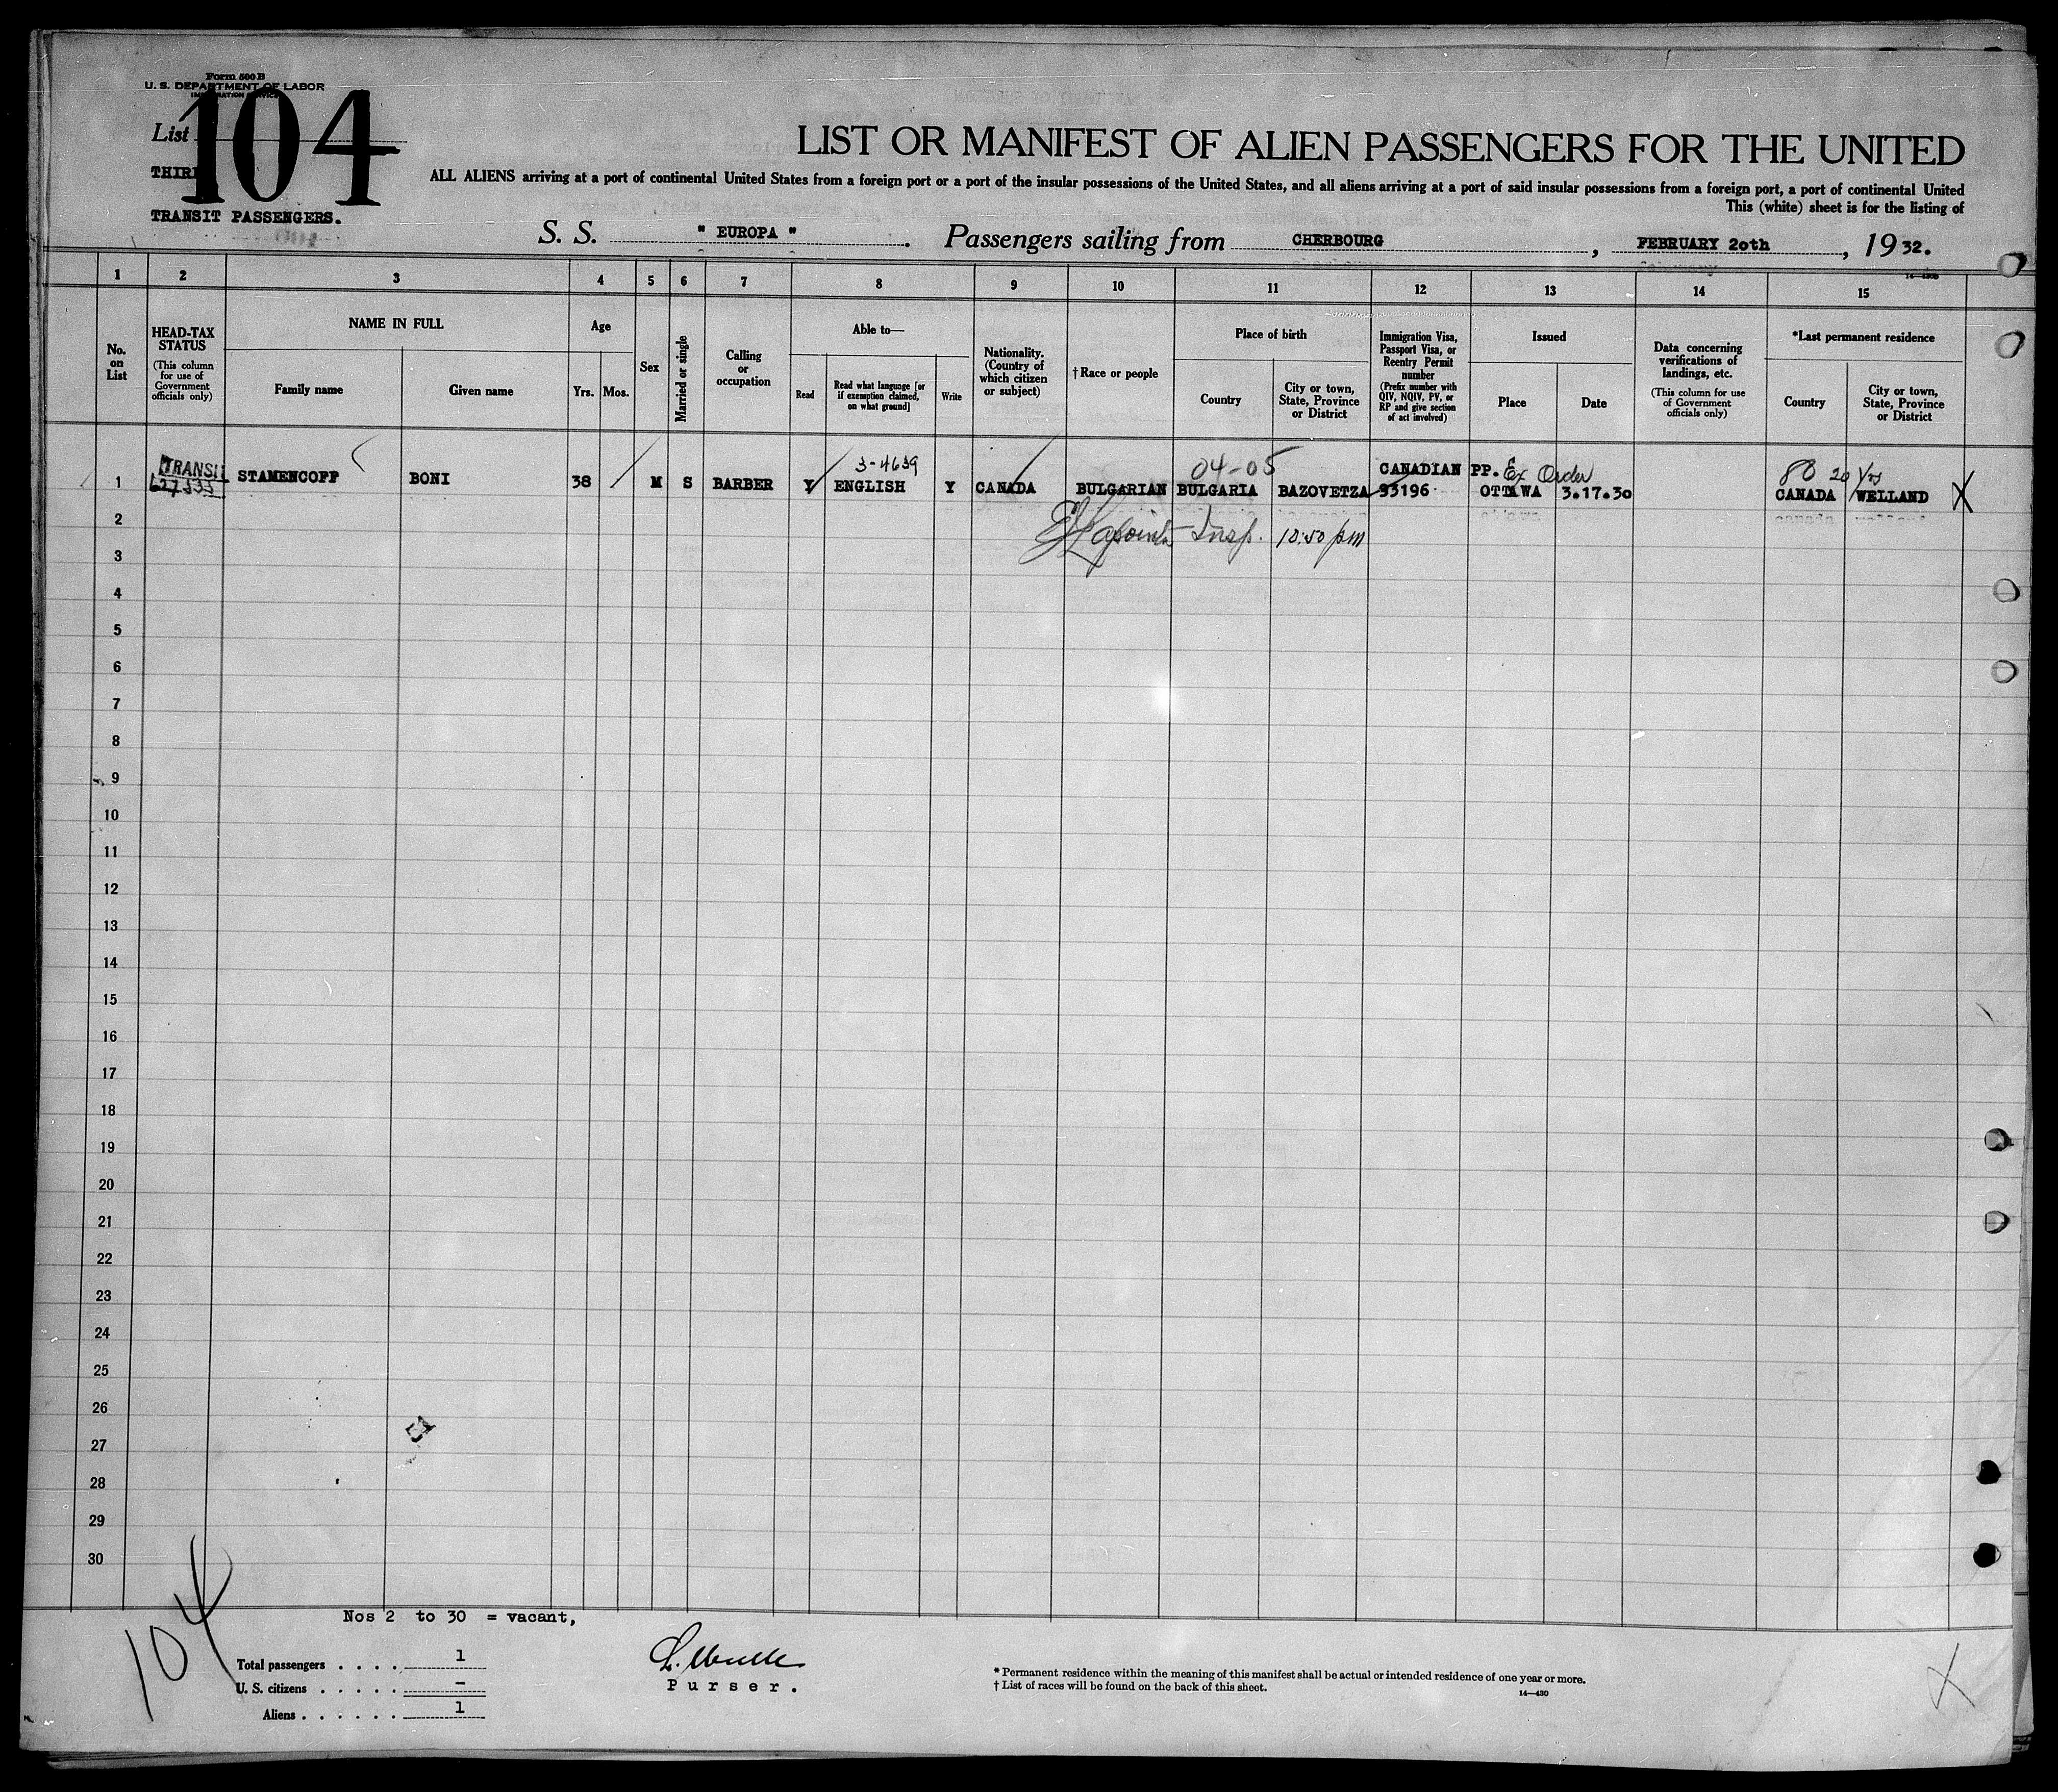 Form 500 B
U. S. DEPARTMENT OF LABOR
IMMIGRATION SERVICE
List 104
THIRD
TRANSIT PASSENGERS.
LIST OR MANIFEST OF ALIEN PASSENGERS FOR THE UNITED
ALL ALIENS arriving at a port of continental United States from a foreign port or a port of the insular possessions of the United States, and all aliens arriving at a port of said insular possessions from a foreign port, a port of continental United
This (white) sheet is for the listing of
S. S. " EUROPA " . Passengers sailing from CHERBOURG , FEBRUARY 20th , 1932.
1 2 3 4 5 6 7 8 9 10 11 12 13 14 15
No. on List
HEAD-TAX STATUS
(This column for use of Government officials only)
NAME IN FULL
Family name
Given name
Age
Yrs. Mos.
Sex
Married or single
Calling or occupation
Able to—
Read
Read what language [or if exemption claimed, on what ground]
Write
Nationality. (Country of which citizen or subject)
†Race or people
Place of birth
Country
City or town, State, Province or District
Immigration Visa, Passport Visa, or Reentry Permit number
(Prefix number with QIV, NQIV, PV, or RP and give section of act involved)
Issued
Place
Date
Data concerning verifications of landings, etc.
(This column for use of Government officials only)
*Last permanent residence
Country
City or town, State, Province or District
TRANSIT 3-4639 04-05 CANADIAN PP. Ex Order 20 Yrs
1 STAMENCOFF BONI 38 M S BARBER Y ENGLISH Y CANADA BULGARIAN BULGARIA BAZOVETZA 93196 OTTAWA 3.17.30 CANADA WELLAND X
2 Lapointe Insp. 10:50 pm
3
4
5
6
7
8
9
10
11
12
13
14
15
16
17
18
19
20
21
22
23
24
25
26
27
28
29
30
Nos 2 to 30 = vacant,
104
Total passengers . . . . 1
U. S. citizens . . . . . -
Aliens . . . . . . 1
Purser.
* Permanent residence within the meaning of this manifest shall be actual or intended residence of one year or more.
† List of races will be found on the back of this sheet.
14—430
X